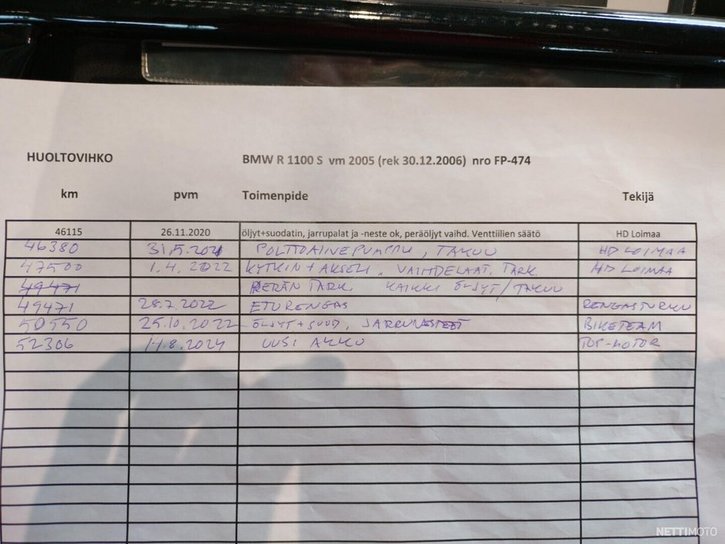 HUOLTOVIHKO BMW R 1100 S vm 2005 (rek 30.12.2006) nro FP-474
km pvm Toimenpide Tekijä
46115 26.11.2020 öljyt+suodatin, jarrupalat ja -neste ok, peräöljyt vaihd. Venttiilien säätö HD Loimaa
46380 31.5.2021 POLTTOAINEPUMPPU, TAKUU HD LOIMAA
47500 1.4.2022 KYTKIN + AKSELI, VAIHDELAAT. TARK. HD LOIMAA
49471 PERÄN TARK KAIKKI ÖLJYT / TAKUU
49471 28.7.2022 ETURENGAS RENGASTURKU
50550 25.10.2022 ÖLJYT+SUOD, JARRUNESTEET BIKETEAM
52306 14.8.2024 UUSI AKKU TOP-MOTOR
NETTIMOTO